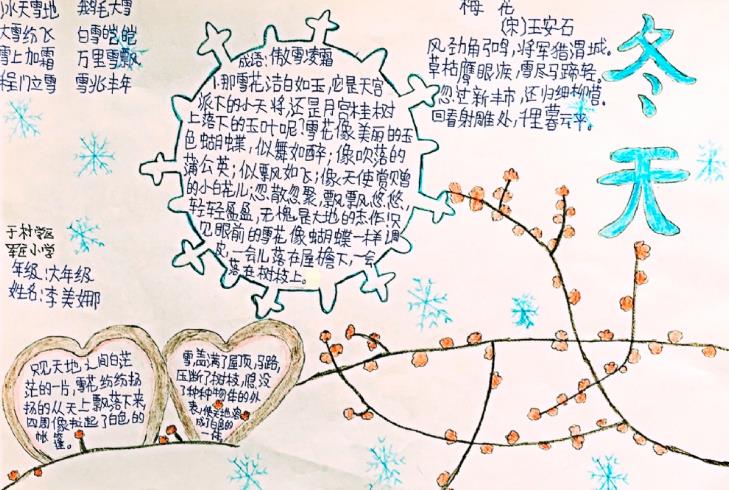 冰天雪地 鹅毛大雪
大雪纷飞 白雪皑皑
雪上加霜 万里雪飘
程门立雪 雪兆丰年
成语:傲雪凌霜
1.那雪花洁白如玉,它是天宫
派下的小天将,还是月宫桂树
上落下的玉叶呢?雪花像美丽的玉
色蝴蝶,似舞如醉;像吹落的
蒲公英;似飘如飞;像天使赏赠
的小白花儿;忽散忽聚,飘飘悠悠,
轻轻盈盈,无愧是大地的杰作!只
见眼前的雪花像蝴蝶一样调
皮,一会儿落在屋檐下,一会
落在树枝上。
梅花
(宋)王安石
风劲角弓鸣,将军猎渭城。
草枯鹰眼疾,雪尽马蹄轻。
忽过新丰市,还归细柳营。
回看射雕处,千里暮云平。
冬天
于村学区
小学
年级:六年级
姓名:李美娜
只见天地之间白茫
茫的一片,雪花纷纷扬
扬的从天上飘落下来,
四周像拉起了白色的
帐篷。
雪,盖满了屋顶,马路,
压断了树枝,隐没
了种种物体的外
表,使天地溶
成了白色的
一体。